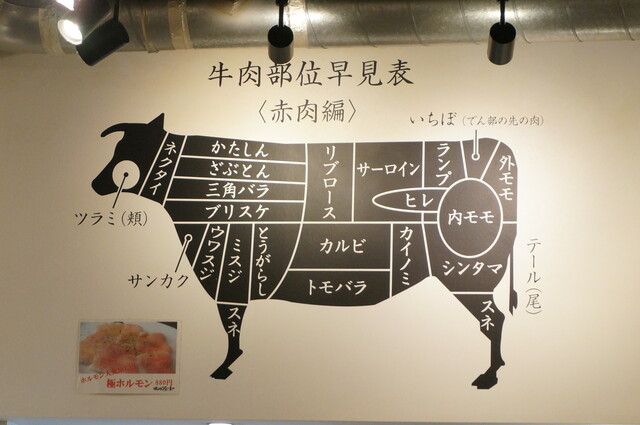 牛肉部位早見表
〈赤肉編〉
いちぼ(でん部の先の肉)
ネクタイ
かたしん
ざぶとん
三角バラ
ブリスケ
リブロース
サーロイン
ヒレ
ランプ
外モモ
内モモ
ツラミ(頬)
サンカク
ウワスジ
ミスジ
とうがらし
カルビ
トモバラ
カイノミ
シンタマ
テール(尾)
スネ
スネ
極ホルモン